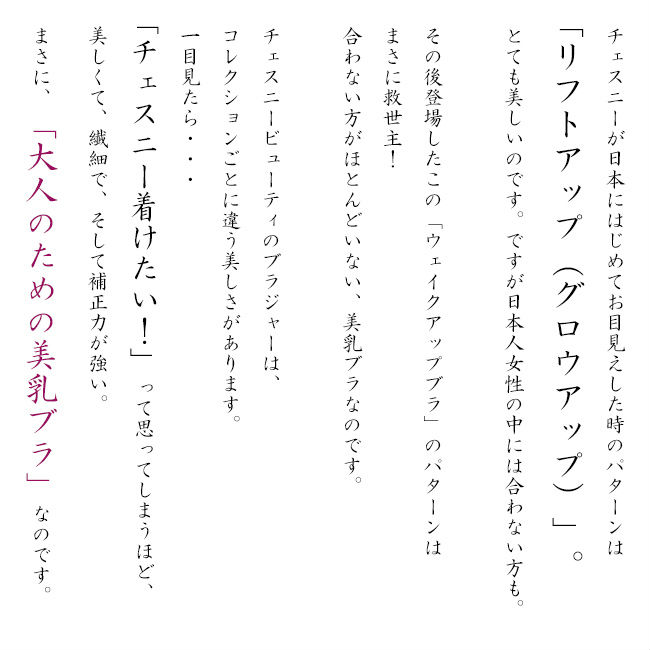 チェスニーが日本にはじめてお目見えした時のパターンは
「リフトアップ（グロウアップ）」。
とても美しいのです。ですが日本人女性の中には合わない方も。
その後登場したこの「ウェイクアップブラ」のパターンは
まさに救世主！
合わない方がほとんどいない、美乳ブラなのです。
チェスニービューティのブラジャーは、
コレクションごとに違う美しさがあります。
一目見たら・・・
「チェスニー着けたい！」って思ってしまうほど、
美しくて、繊細で、そして補正力が強い。
まさに、「大人のための美乳ブラ」なのです。